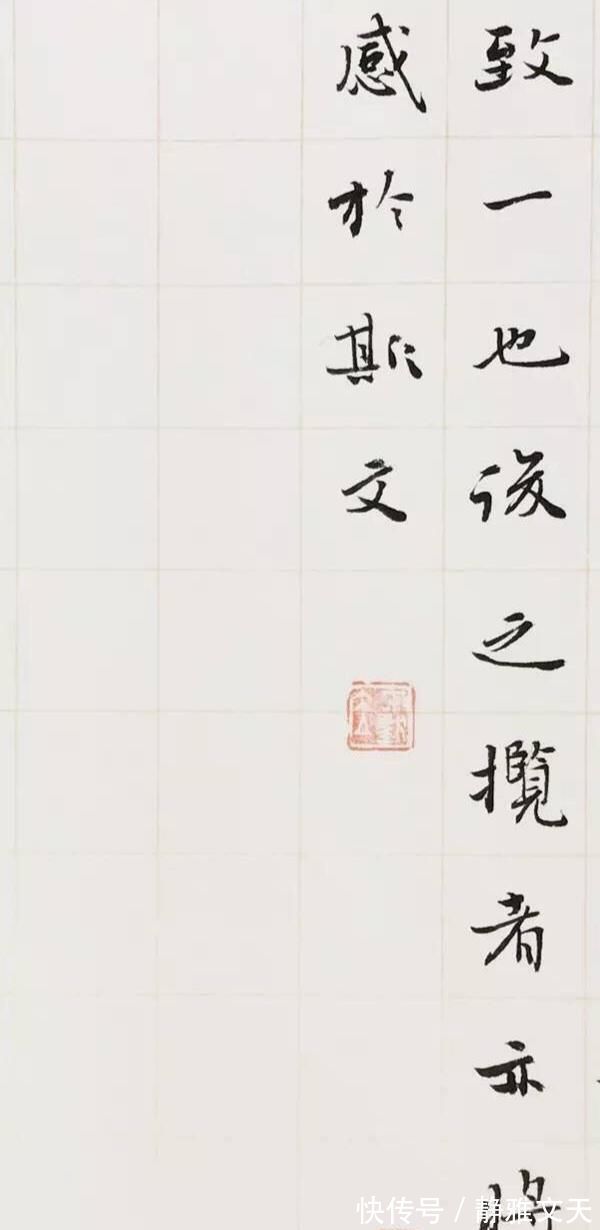 致一也後之攬者亦將
感於斯文
快传号/静雅文天